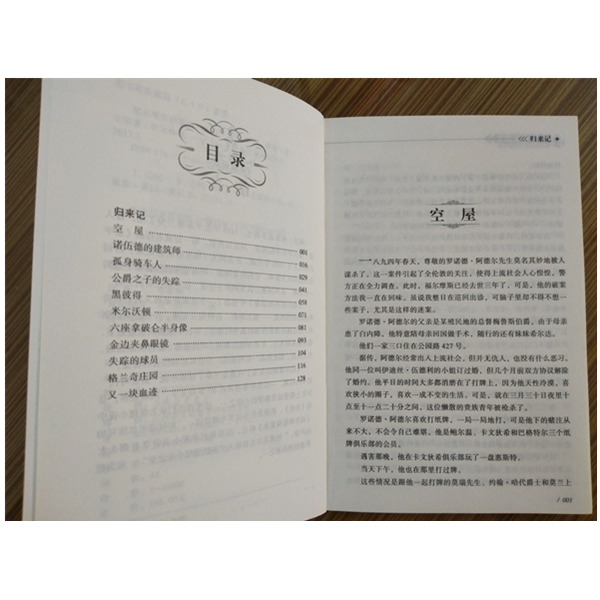 目录
归来记
空 屋 …… 001
诺伍德的建筑师 …… 016
孤身骑车人 …… 029
公爵之子的失踪 …… 041
黑彼得 …… 058
米尔沃顿 …… 071
六座拿破仑半身像 …… 081
金边夹鼻眼镜 …… 093
失踪的球员 …… 104
格兰奇庄园 …… 116
又一块血迹 …… 128
<<< 归来记
空 屋
一八九四年春天，尊敬的罗诺德·阿德尔先生莫名其妙地被人
谋杀了。这一案件引起了全伦敦的关注，使得上流社会人心惶惶，警
方正在全力调查。此时，福尔摩斯已经去世三年了，可是，他的破案
方法我一直在回味。虽说我整日在巡回出诊，可脑子里却不得不想一
些案子，尤其是这样的谜案。
罗诺德·阿德尔的父亲是某殖民地的总督梅鲁斯伯爵，由于母亲
患了白内障，他特意陪母亲回国做手术，与他们随行的还有妹妹希尔达。
他们一家三口住在公园路 427 号。
据传，阿德尔经常出入上流社会，但并无仇人，也没有什么恶习。
他同一位叫伊迪丝·伍德利的小姐订过婚，但几个月前双方协议解除
了婚约。他平日的时间大多都消磨在了打牌上，因为他天性冷漠，喜
欢狭小的圈子，喜欢一成不变的生活。可是，就在三月三十日夜里十
点至十一点二十分之间，这位懒散的贵族青年被枪杀了。
罗诺德·阿德尔喜欢打纸牌，一局一局地打，可是他下的赌注从
来不大，不会令自己难堪。他是鲍尔温、卡文狄希和巴格特尔三个纸
牌俱乐部的会员。
遇害那晚，他在卡文狄希俱乐部玩了一盘惠斯特。
当天下午，他也在那里打过牌。
这些情况是跟他一起打牌的莫瑞先生、约翰·哈代爵士和莫兰上
/ 001